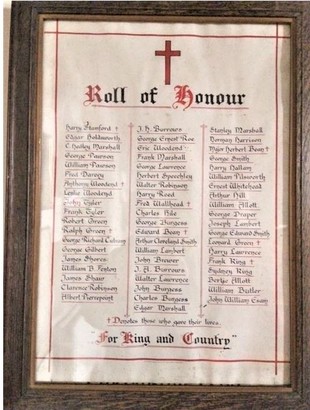 Roll of Honour
Harry Stanford †
Edgar Holdsworth
C. Hedley Marshall
George Pawson
William Pawson
Fred Darvey
Anthony Woodend †
Leslie Woodend
John Tyler
Frank Tyler
Robert Green
Ralph Green †
George Richard
George Gilbert
James Shores
William D. Fenton
James Shaw
Clarence Robinson
Albert Pierrepoint
J. H. Burrows
George Ernest Roe
Eric Woodend
Frank Marshall
George Lawrence
Herbert Speechley
Walter Robinson
Harry Reed
Fred Wallhead †
Charles Pile
George Burgess
Edward Bean †
Arthur Cleveland Smith
William Lambert
John Brewer
J. A. Burrows
Walter Lawrence
John Burgess
Charles Burgess
Edgar Marshall
Stanley Marshall
Harrison
Major Herbert Bean †
George Smith
Harry Hallam
William Pilsworth
Ernest Whitehead
Arthur Hill
William Allott
George Draper
Joseph Lambert
George Edward Smith
Leonard Green †
Harry Lawrence
Frank Ring †
Sydney Ring
Bertie Allott
William Butler
John William Esam
† Denotes those who gave their lives.
"For King and Country"